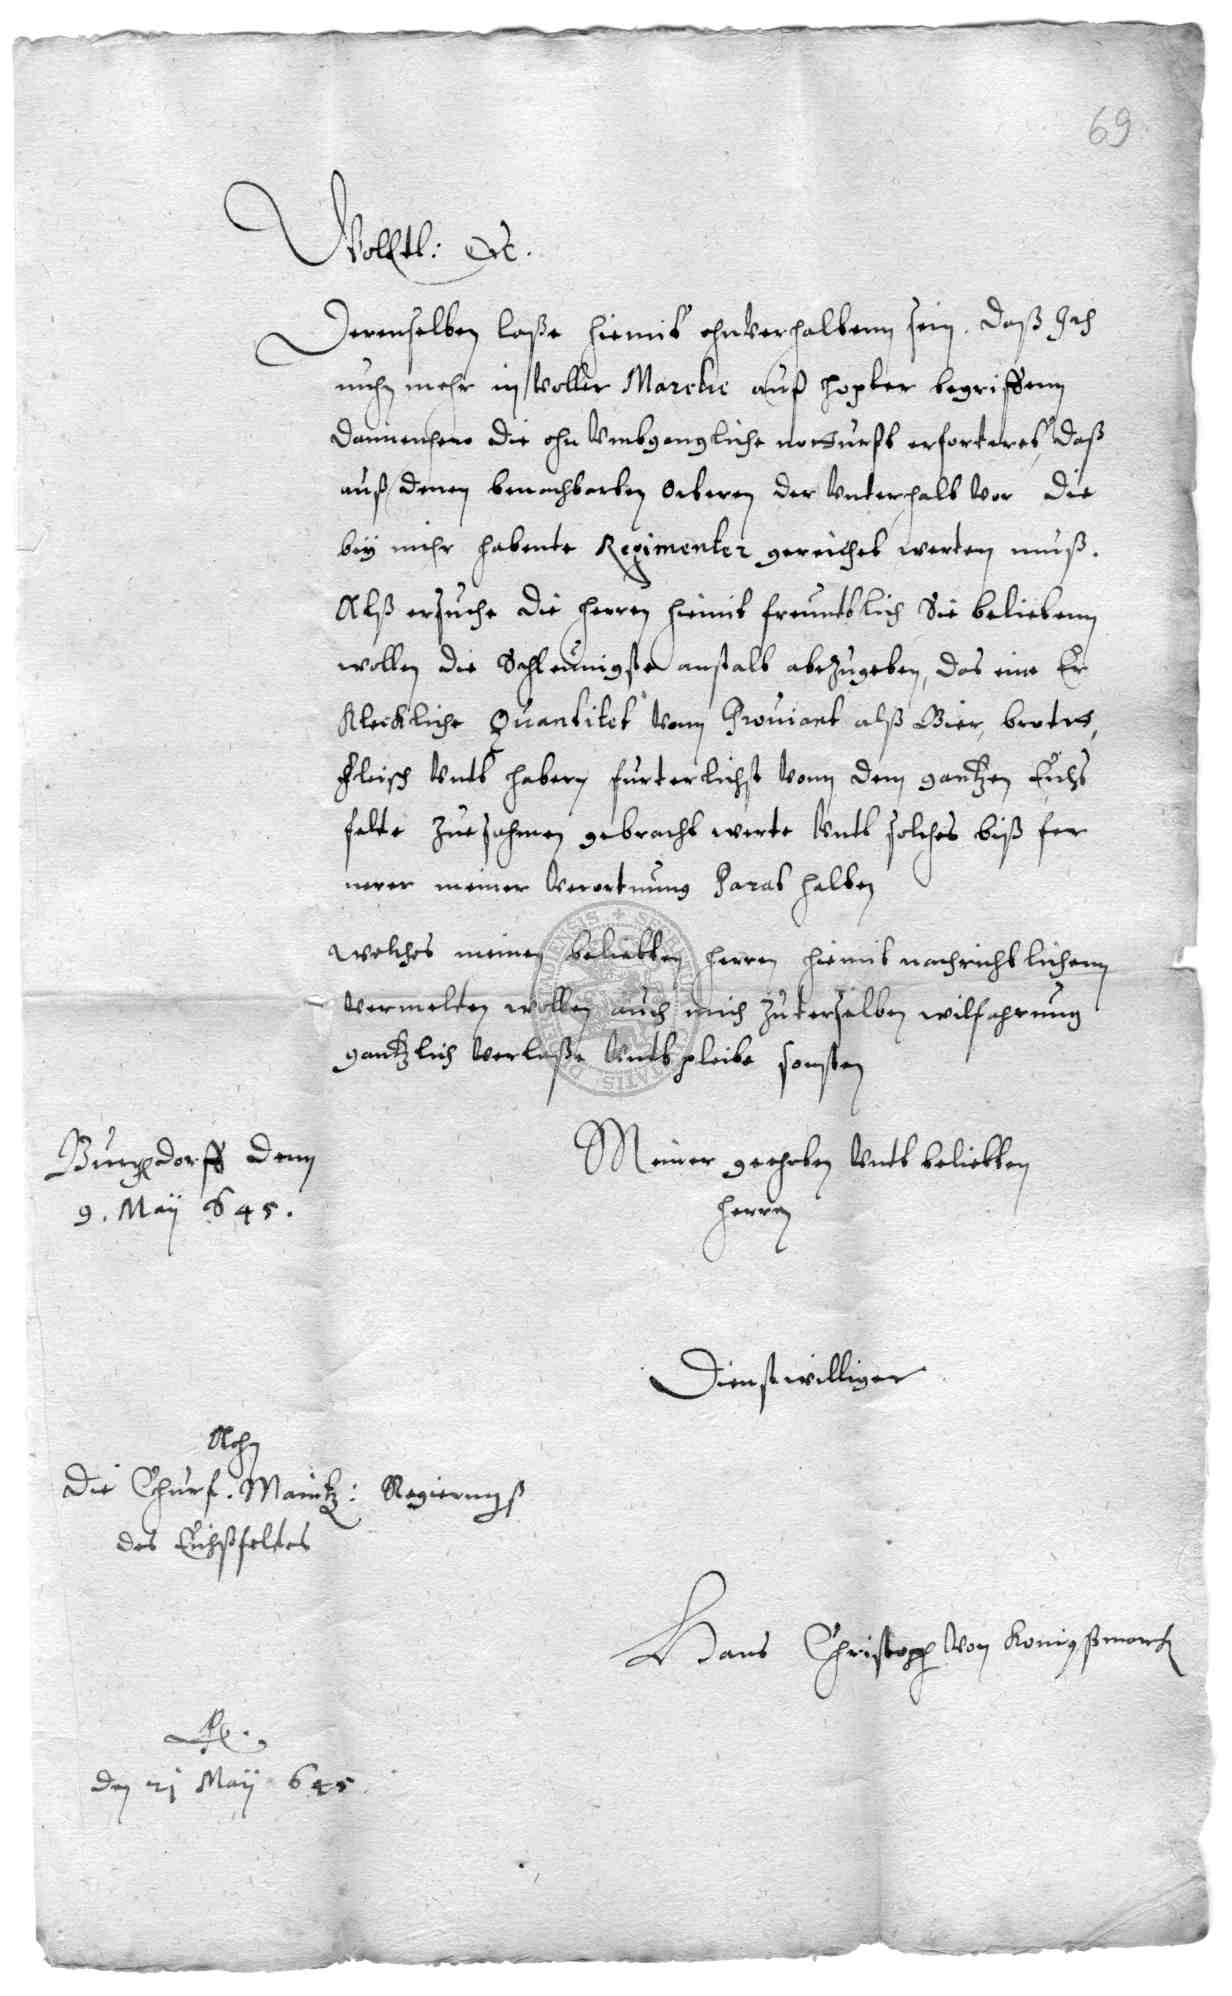 69
WollEdl: etc.
Derenselben laße hiemit ohnverhaltenn sein. daß Ich
nuhn mehr in voller Marche auß hopter begriffenn
dannenhero die ohn Umbgengliche notturfft erforteret, daß
auß denen benachbarten örteren der Unterhalt vor die
bey mihr habente Regimenter gereichet werten muß.
Alß ersuche die herren hiemit freuntlich Sie beliebenn
wollen die Schleunigste anstalt abzugeben, das eine Er
Kleckliche Quantitet vonn Proviant alß Bier, brotts,
fleisch Unt habern furterlichst vonn dem gantzen Eichs
felte zuesahmen gebracht werte Unt solches biß fer
nerer meiner Verortnung Parat halten
welches meinen beliebten herren hiemit nachrichtlichenn
vermelten wollen auch mich zuterselben wilfahrung
gantzlich verlaße Unt pleibe sonsten
Burgdorff denn
9. Maÿ 645.
Meiner geehrten Unt beliebten
herren
Dienstwilliger
Ahn
die Churf. Maintz: Regierung
des Eichßfeltes
Hans Christoph von Konigßmarck
Pr.
den 21 Maÿ 645.